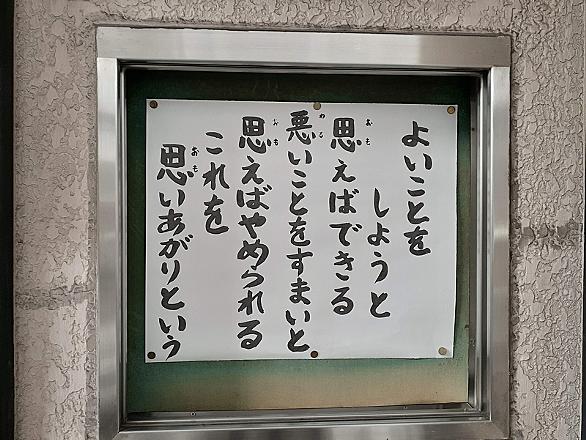 よいことを
しようと
思えばできる
悪いことをすまいと
思えばやめられる
これを
思いあがりという